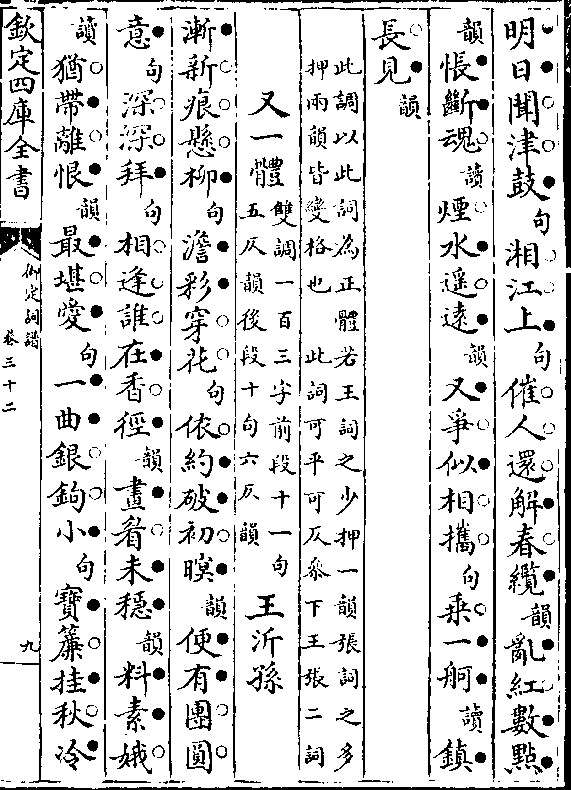 明日聞津鼓句湘江上句催人還解春纜韻亂紅數點
韻悵斷魂讀煙水遥遠韻又爭似相攜句乗一舸讀鎮
長見韻
此調以此詞為正體若王詞之少押一韻張詞之多
押兩韻皆變格也　此詞可平可仄叅下王張二詞
又一體雙調一百三字前段十一句
五仄韻後段十句六仄韻
王沂孫
漸新痕懸柳句澹彩穿花句依約破初暝韻便有團圓
意句深深拜句相逢誰在香徑韻畫眉未穩韻料素娥
讀猶帶離恨韻最堪愛句一曲銀鉤小句寶簾挂秋冷
欽定四庫全書
御定詞譜
卷三十二
九